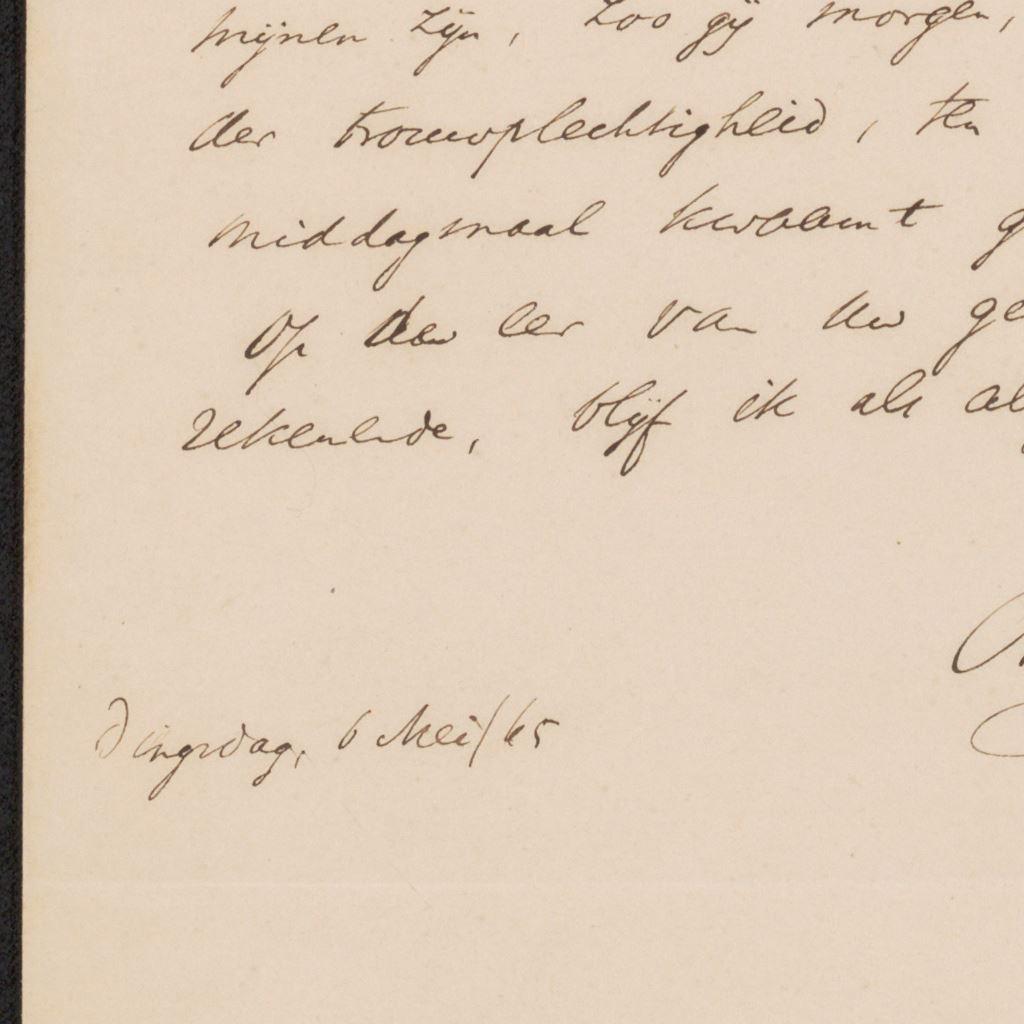 mijnen zijn, Zoo gij morgen,
der trouwplechtigheid, ten
middagmaal kwaamt
Op den eer van uw
rekenende, blijf ik als
Dingsdag, 6 Mei/65